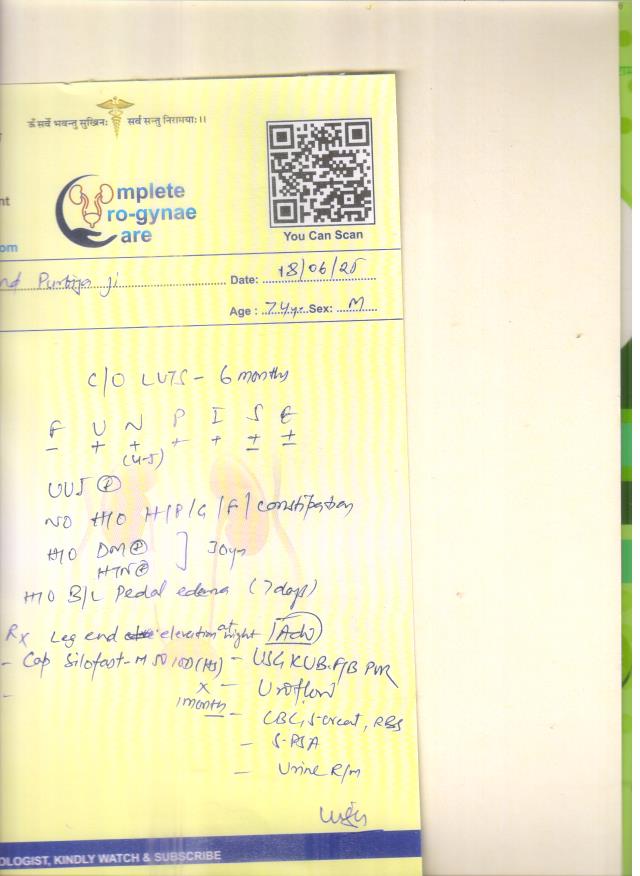 ॐ सर्वे भवन्तु सुखिनः सर्व सन्तु निरामयाः।।
omplete
ro-gynae
are
You Can Scan
nt
om
nd Purbiya ji Date: 18/06/25
Age : 74yr Sex: M
C/O LUTS - 6 months
F U N P I S E
- + + + + ± ±
(4-5)
UUI (+)
NO H/O H/P/G/F/constipation
H/O DM (+) ] 30yr
HTN (+)
H/O B/L Pedal edema (7 days)
Rx Leg end elevation at night Adv
- Cap Silofast-M 50 10D (HS) - USG KUB. PVR
x - Uroflow
1 month - CBC, S-creat, RBS
- S-PSA
- Urine R/m
OLOGIST, KINDLY WATCH & SUBSCRIBE